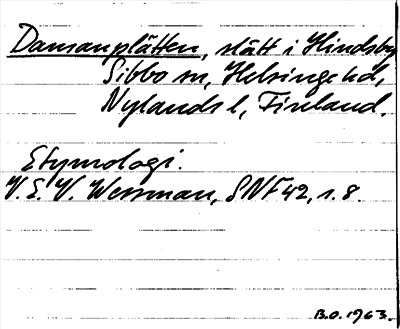 Damanplätten, slätt i Hindsby
Sibbo sn, Helsinge hd,
Nylands l, Finland.
Etymologi.
V. E. V. Wessman, SNF 42, s. 8.
B.O. 1963.